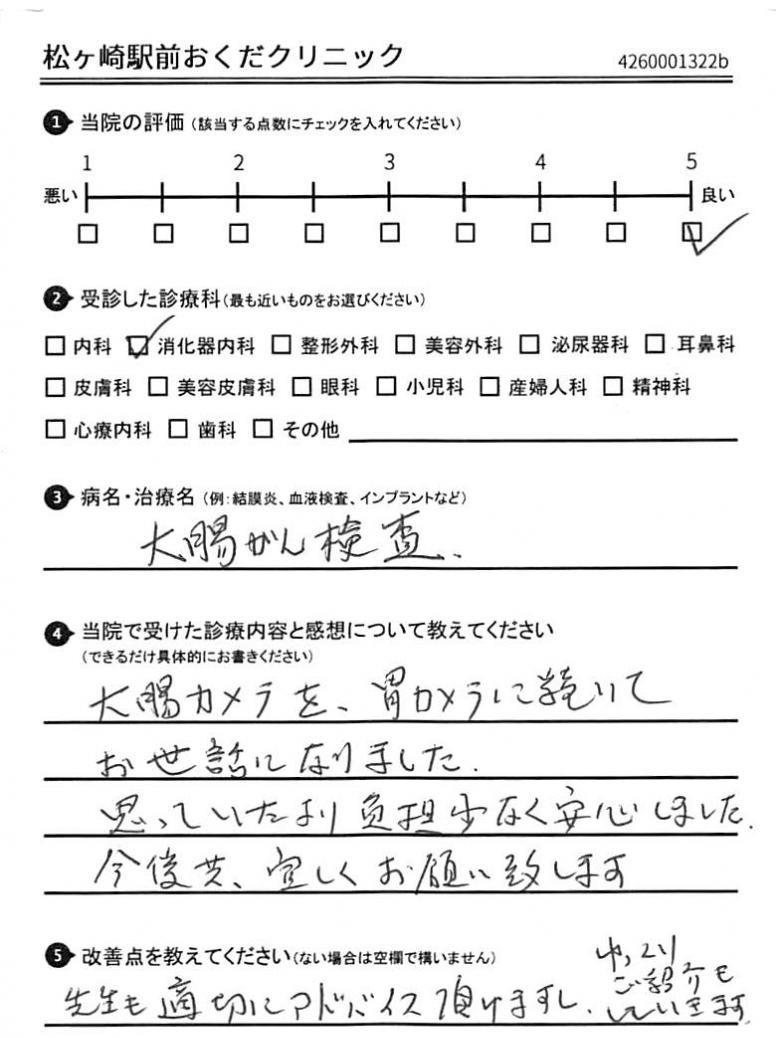 松ヶ崎駅前おくだクリニック 4260001322b
❶ 当院の評価(該当する点数にチェックを入れてください)
1 2 3 4 5
悪い 良い
❷ 受診した診療科(最も近いものをお選びください)
内科 消化器内科 整形外科 美容外科 泌尿器科 耳鼻科
皮膚科 美容皮膚科 眼科 小児科 産婦人科 精神科
心療内科 歯科 その他
❸ 病名・治療名(例:結膜炎、血液検査、インプラントなど)
大腸がん検査、
❹ 当院で受けた診療内容と感想について教えてください
(できるだけ具体的にお書きください)
大腸カメラを、胃カメラに続いて
お世話になりました.
思っていたより負担少なく安心しました.
今後共、宜しくお願い致します
❺ 改善点を教えてください(ない場合は空欄で構いません)
先生も適切にアドバイス頂けますし、
ご紹介も
していきます